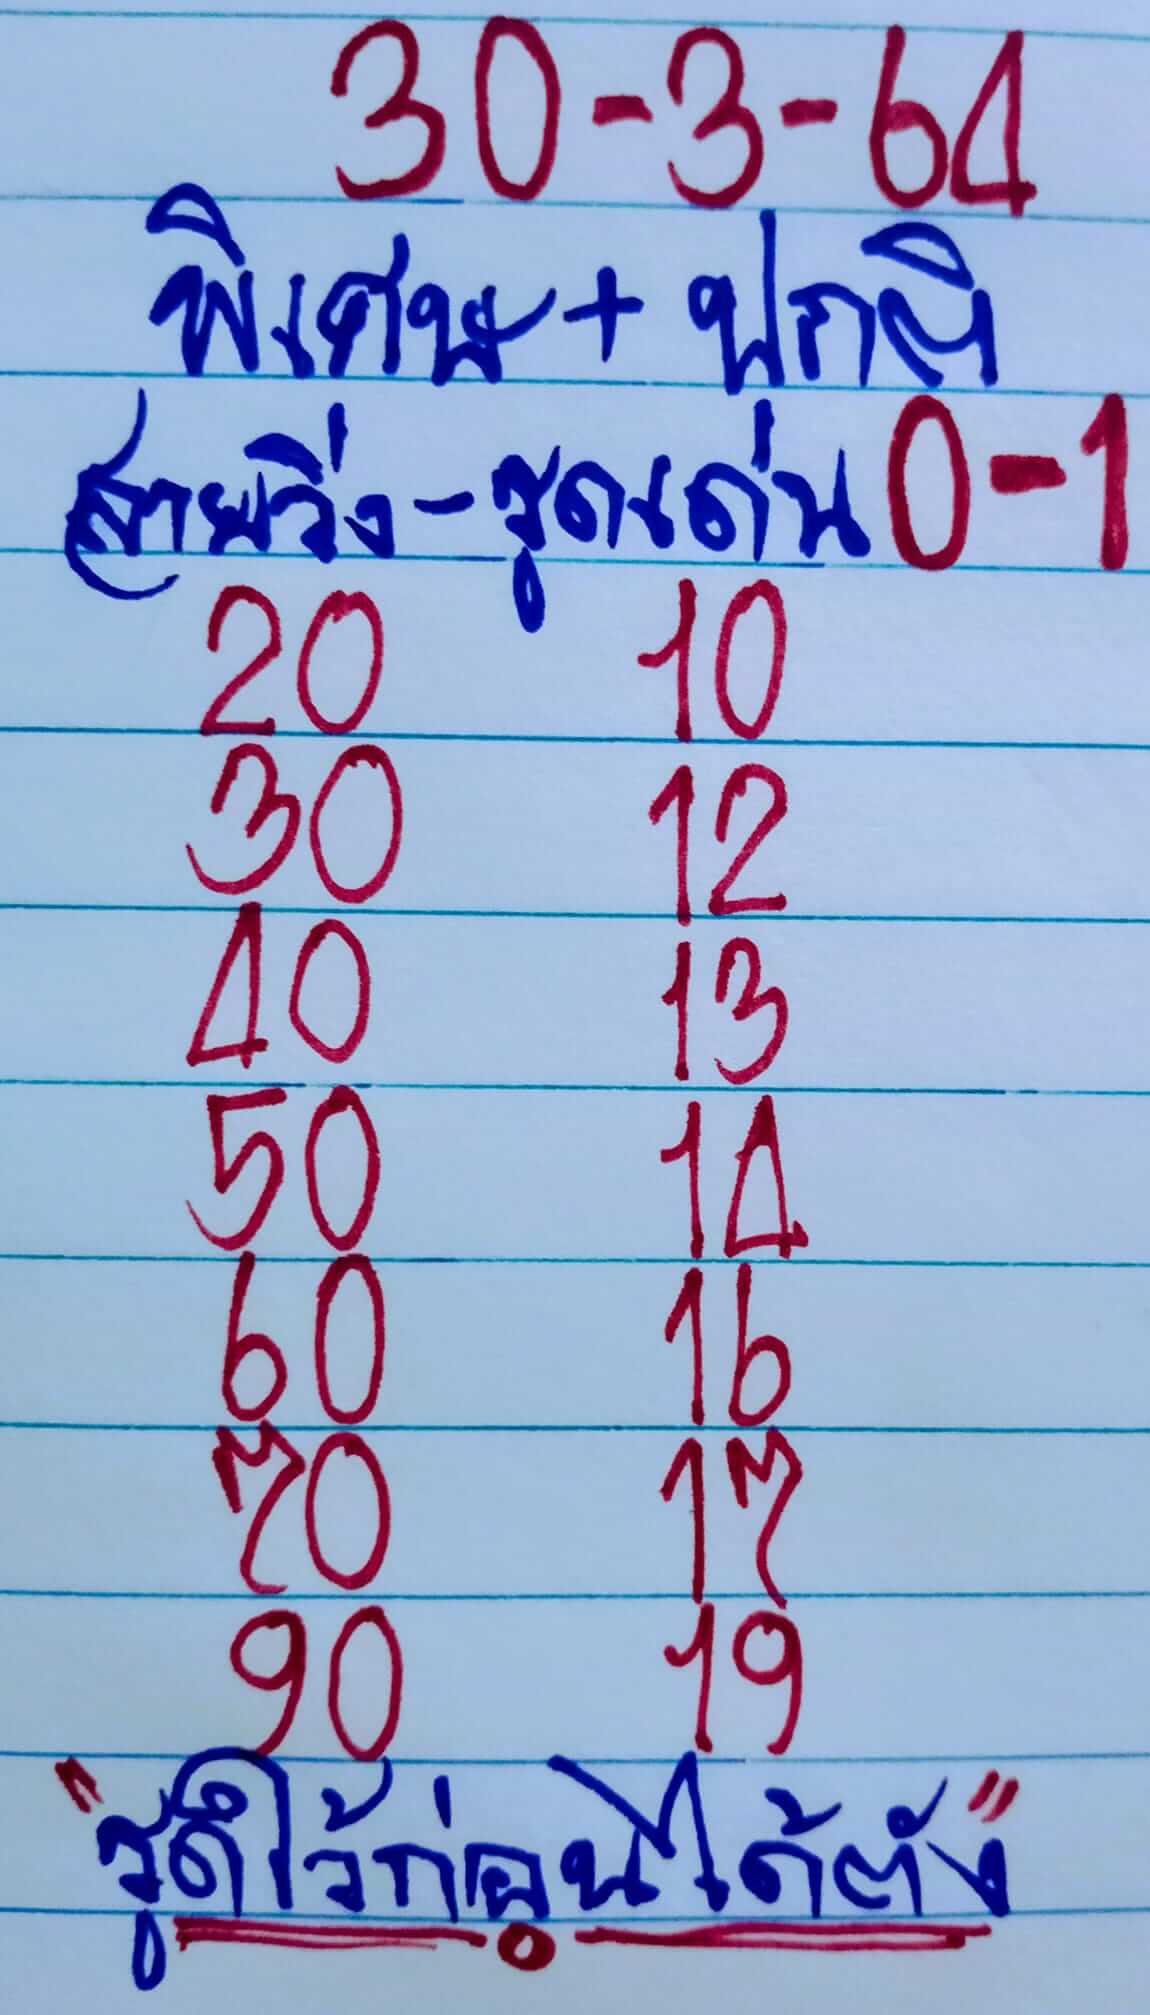 30-3-64
พิเศษ + ปกติ
สายวิ่ง - รูดเด่น 0-1
20 10
30 12
40 13
50 14
60 16
70 17
90 19
"รูดไว้ก่อนได้ตัง"